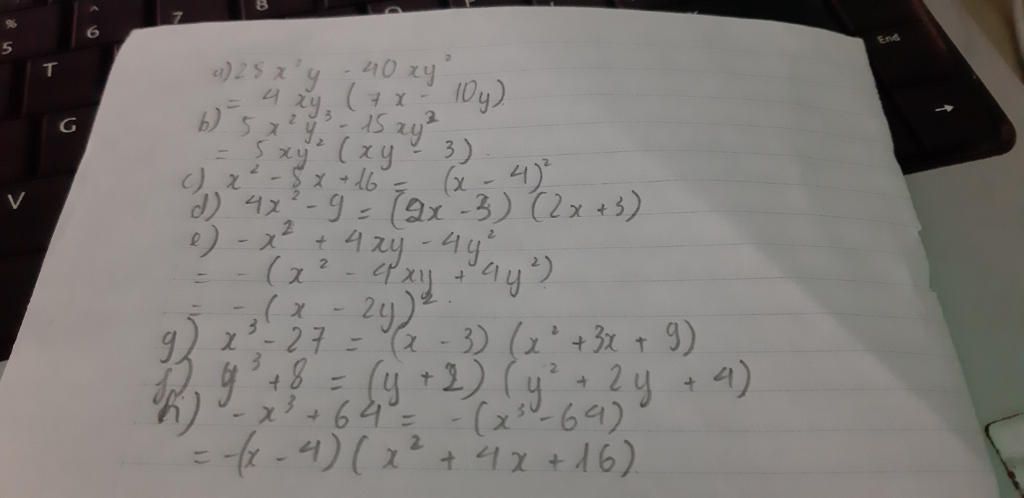 %
5
^
6
7
8
T
G
V
End
→
a) 28x²y - 40xy²
= 4xy (7x - 10y)
b) 5x²y³ - 15xy²
= 5xy² (xy - 3)
c) x² - 8x + 16 = (x - 4)²
d) 4x² - 9 = (2x - 3) (2x + 3)
e) - x² + 4xy - 4y²
= - (x² - 4xy + 4y²)
= - (x - 2y)².
g) x³ - 27 = (x - 3) (x² + 3x + 9)
f) y³ + 8 = (y + 2) (y² + 2y + 4)
h) - x³ + 64 = - (x³ - 64)
= -(x - 4) (x² + 4x + 16)